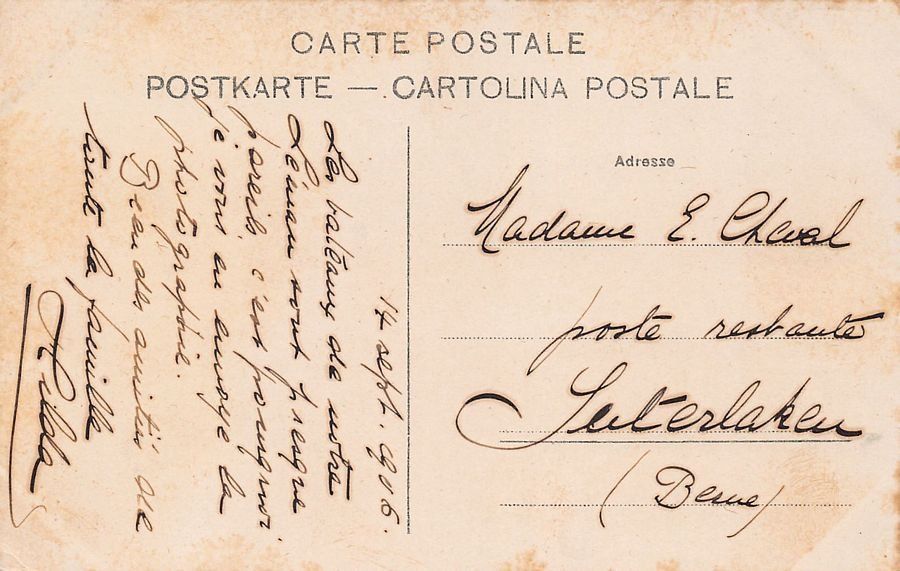 CARTE POSTALE
POSTKARTE — CARTOLINA POSTALE
14 sept. 906.
Les bateaux de notre
Léman sont presque
pareils, c'est pourquoi
je vous en envoye la
photographie.
Bien des amitiés de
toute la famille
Hilda
Adresse
Madame E. Cheval
poste restante
Interlaken
(Berne)